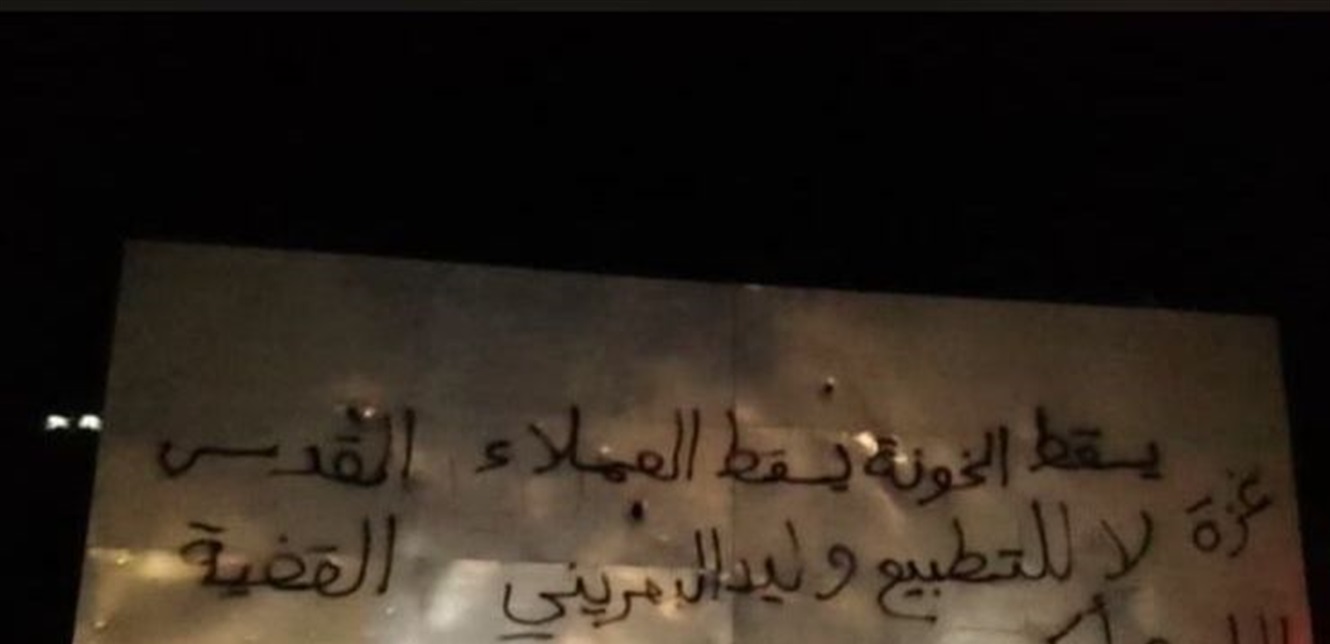 يسقط الخونة يسقط العملاء القدس
غزة لا للتطبيع وليد القضية